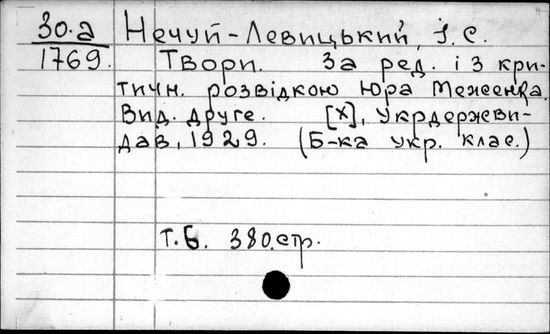 30.а
1769.
Нечуй-Левицький, І.С.
Твори. За ред. і з кри-
тичн. розвідкою Юра Меженка.
Вид. друге. [Х], Укрдержви-
дав, 1929. (Б-ка укр. клас.)
т. 6. 380.стр.